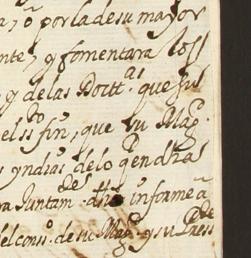 , o por la de su mayor
nte, y fomentara los
y de las Doctt.as que sus
el ss.do fin, que su Mag.
yndias de lo q.e en dhas
ra Juntam.de dho informe a
del cons.o de su Mag. y su Press.de